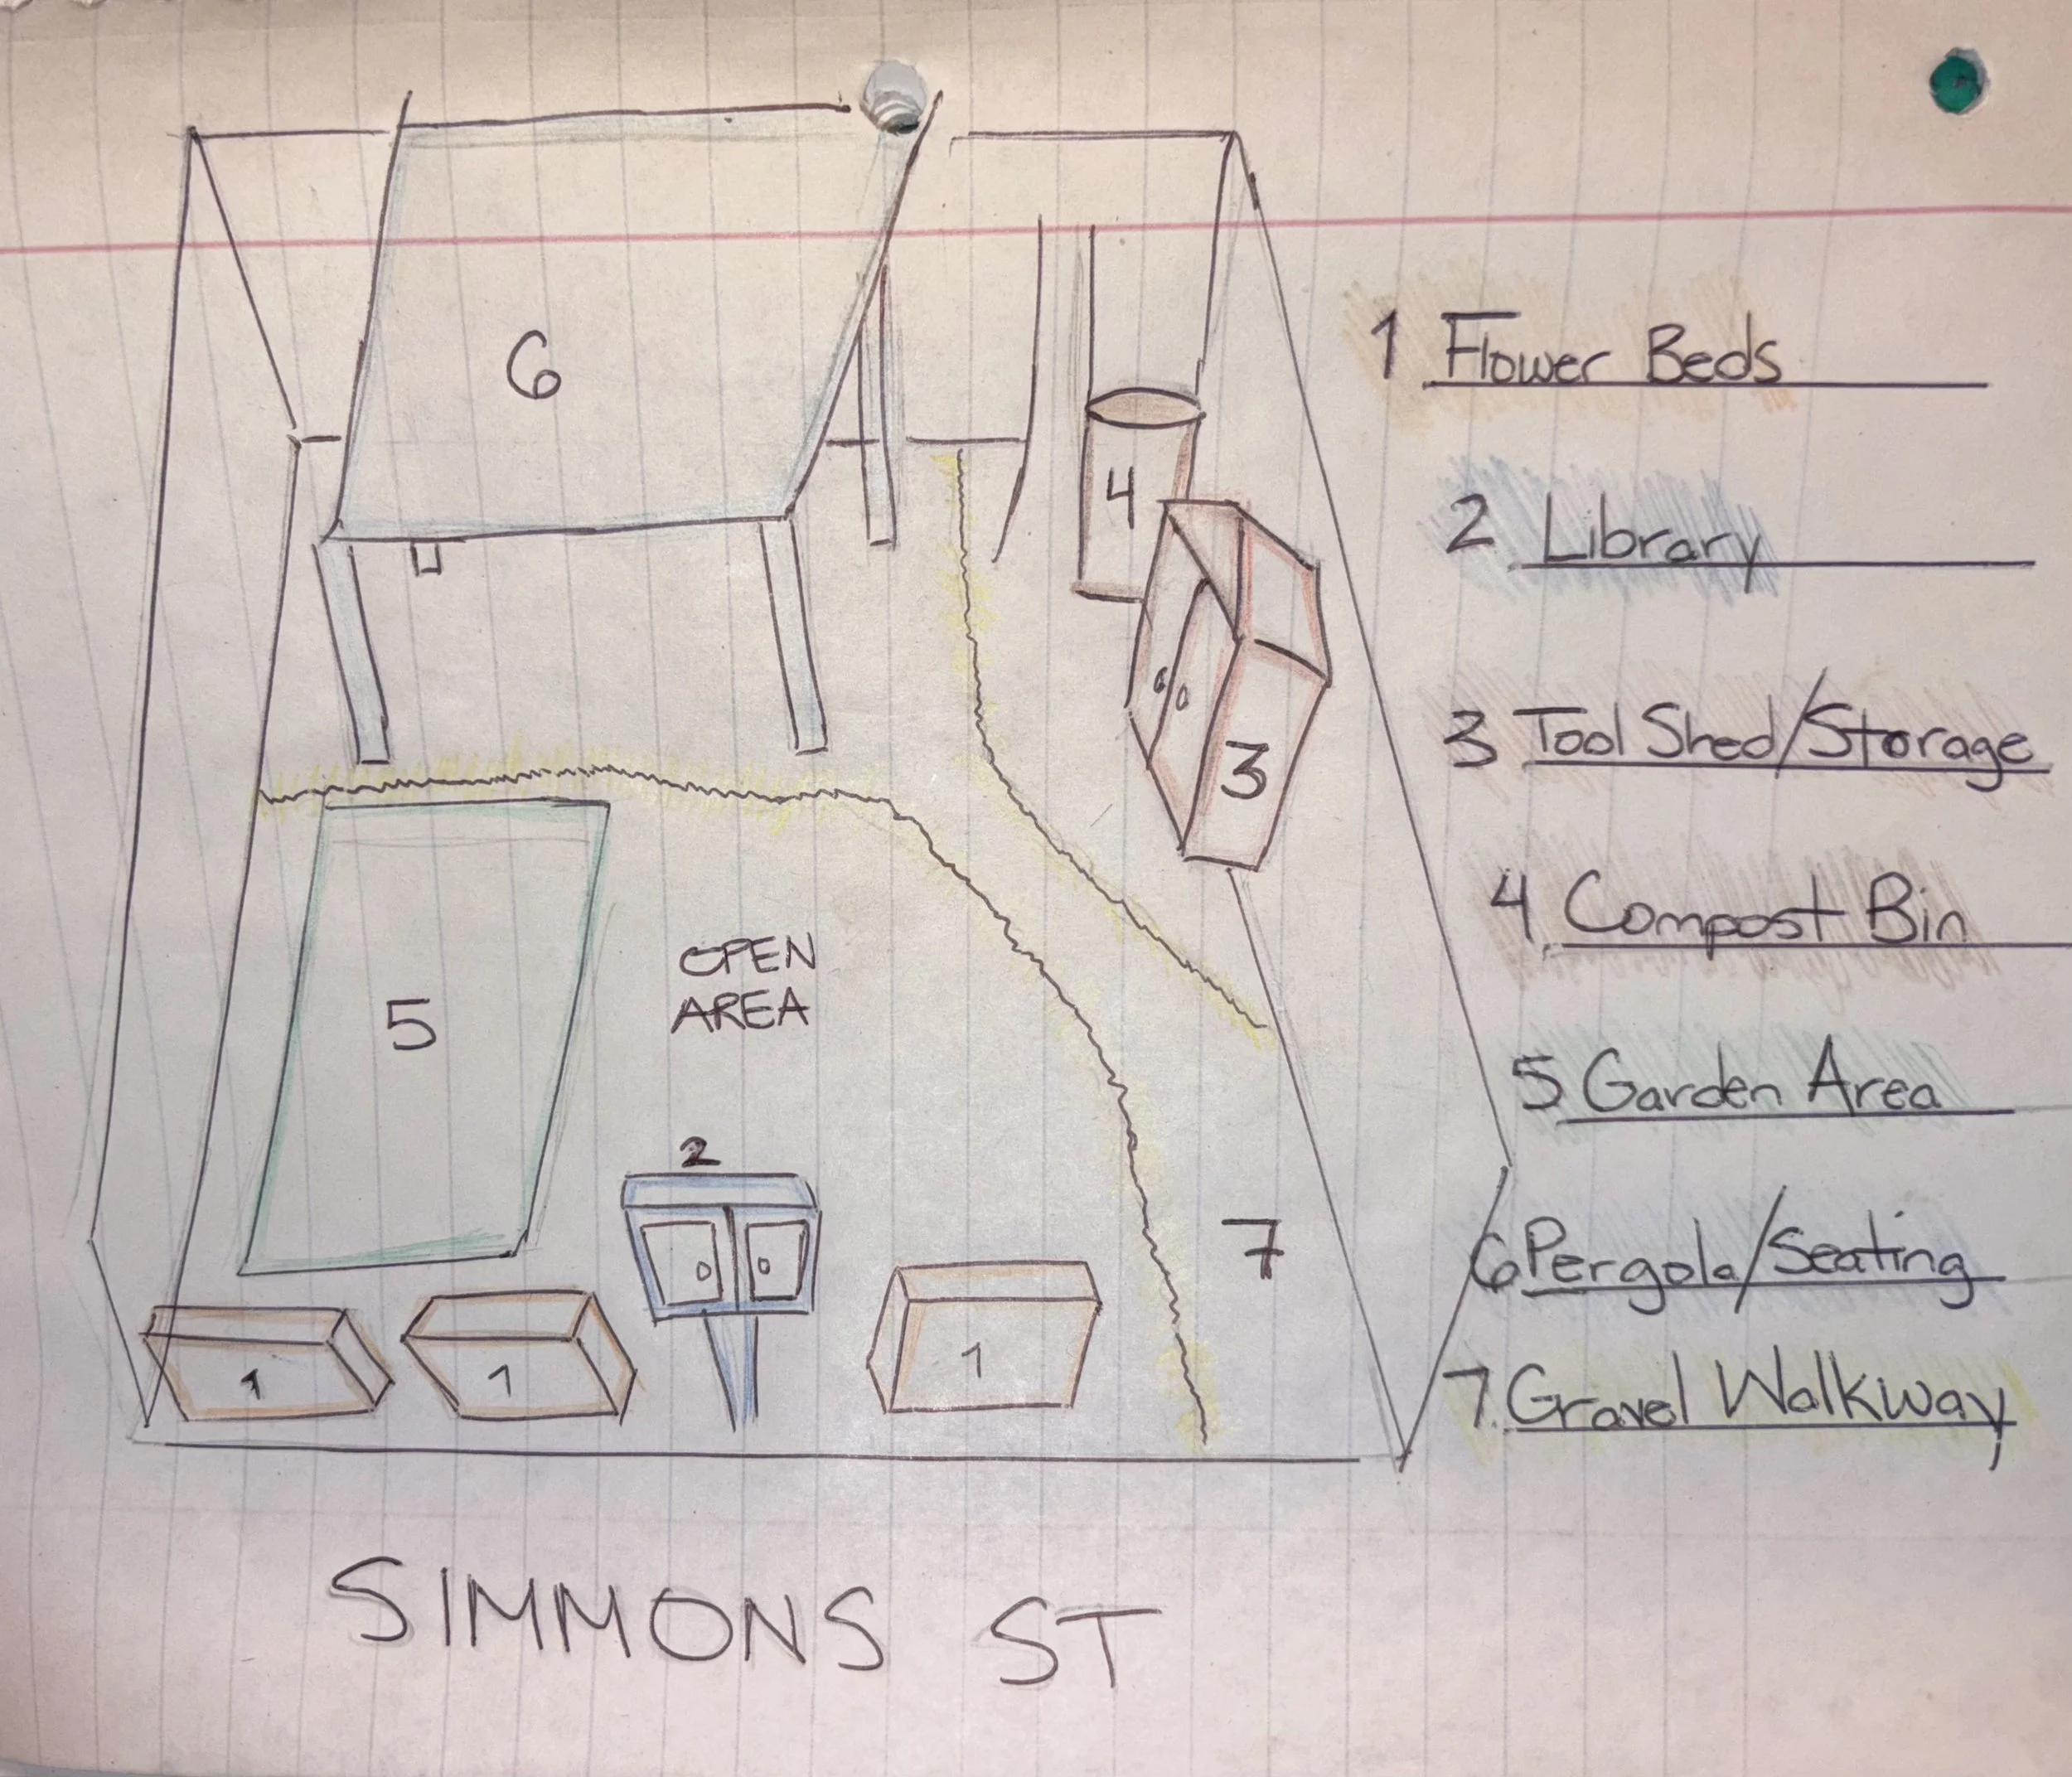 6
4
3
5
OPEN
AREA
2
7
1
1
1
SIMMONS ST
1 Flower Beds
2 Library
3 Tool Shed/Storage
4 Compost Bin
5 Garden Area
6 Pergola/Seating
7. Gravel Walkway